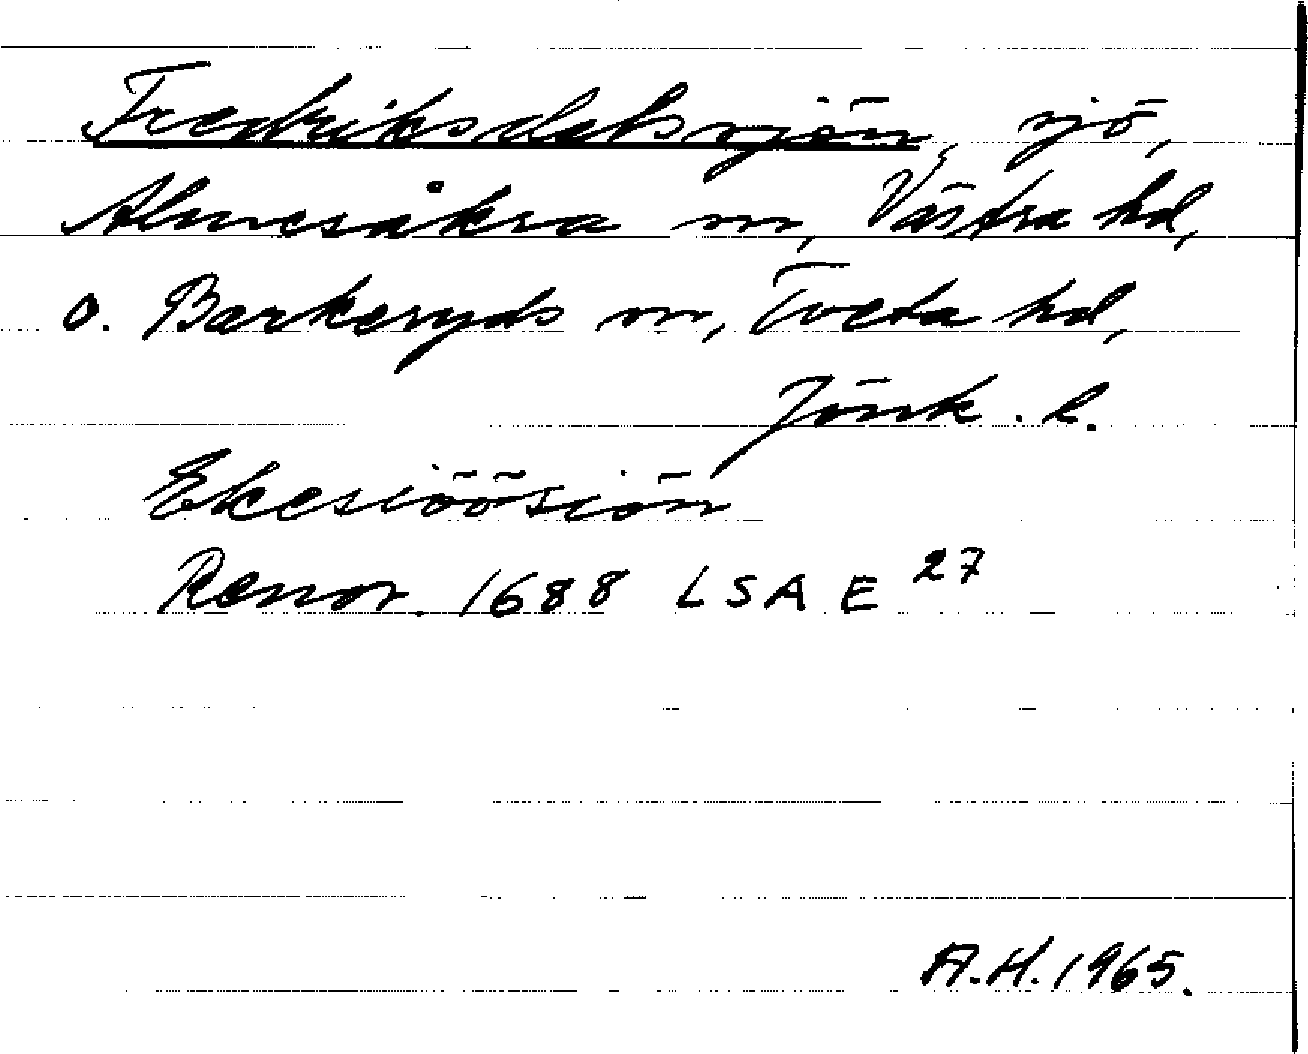 Fredriksdalssjön, sjö,
Almesåkra sn, Västra hd,
o. Barkeryds sn, Tveta hd,
Jönk. l.
Ekesiöösiön
Renov. 1688 LSA E 27
A.H. 1965.